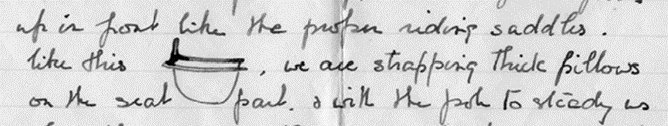 up in front like the proper riding saddles.
like this , we are strapping thick pillows
on the seat part. & with the pole to steady us